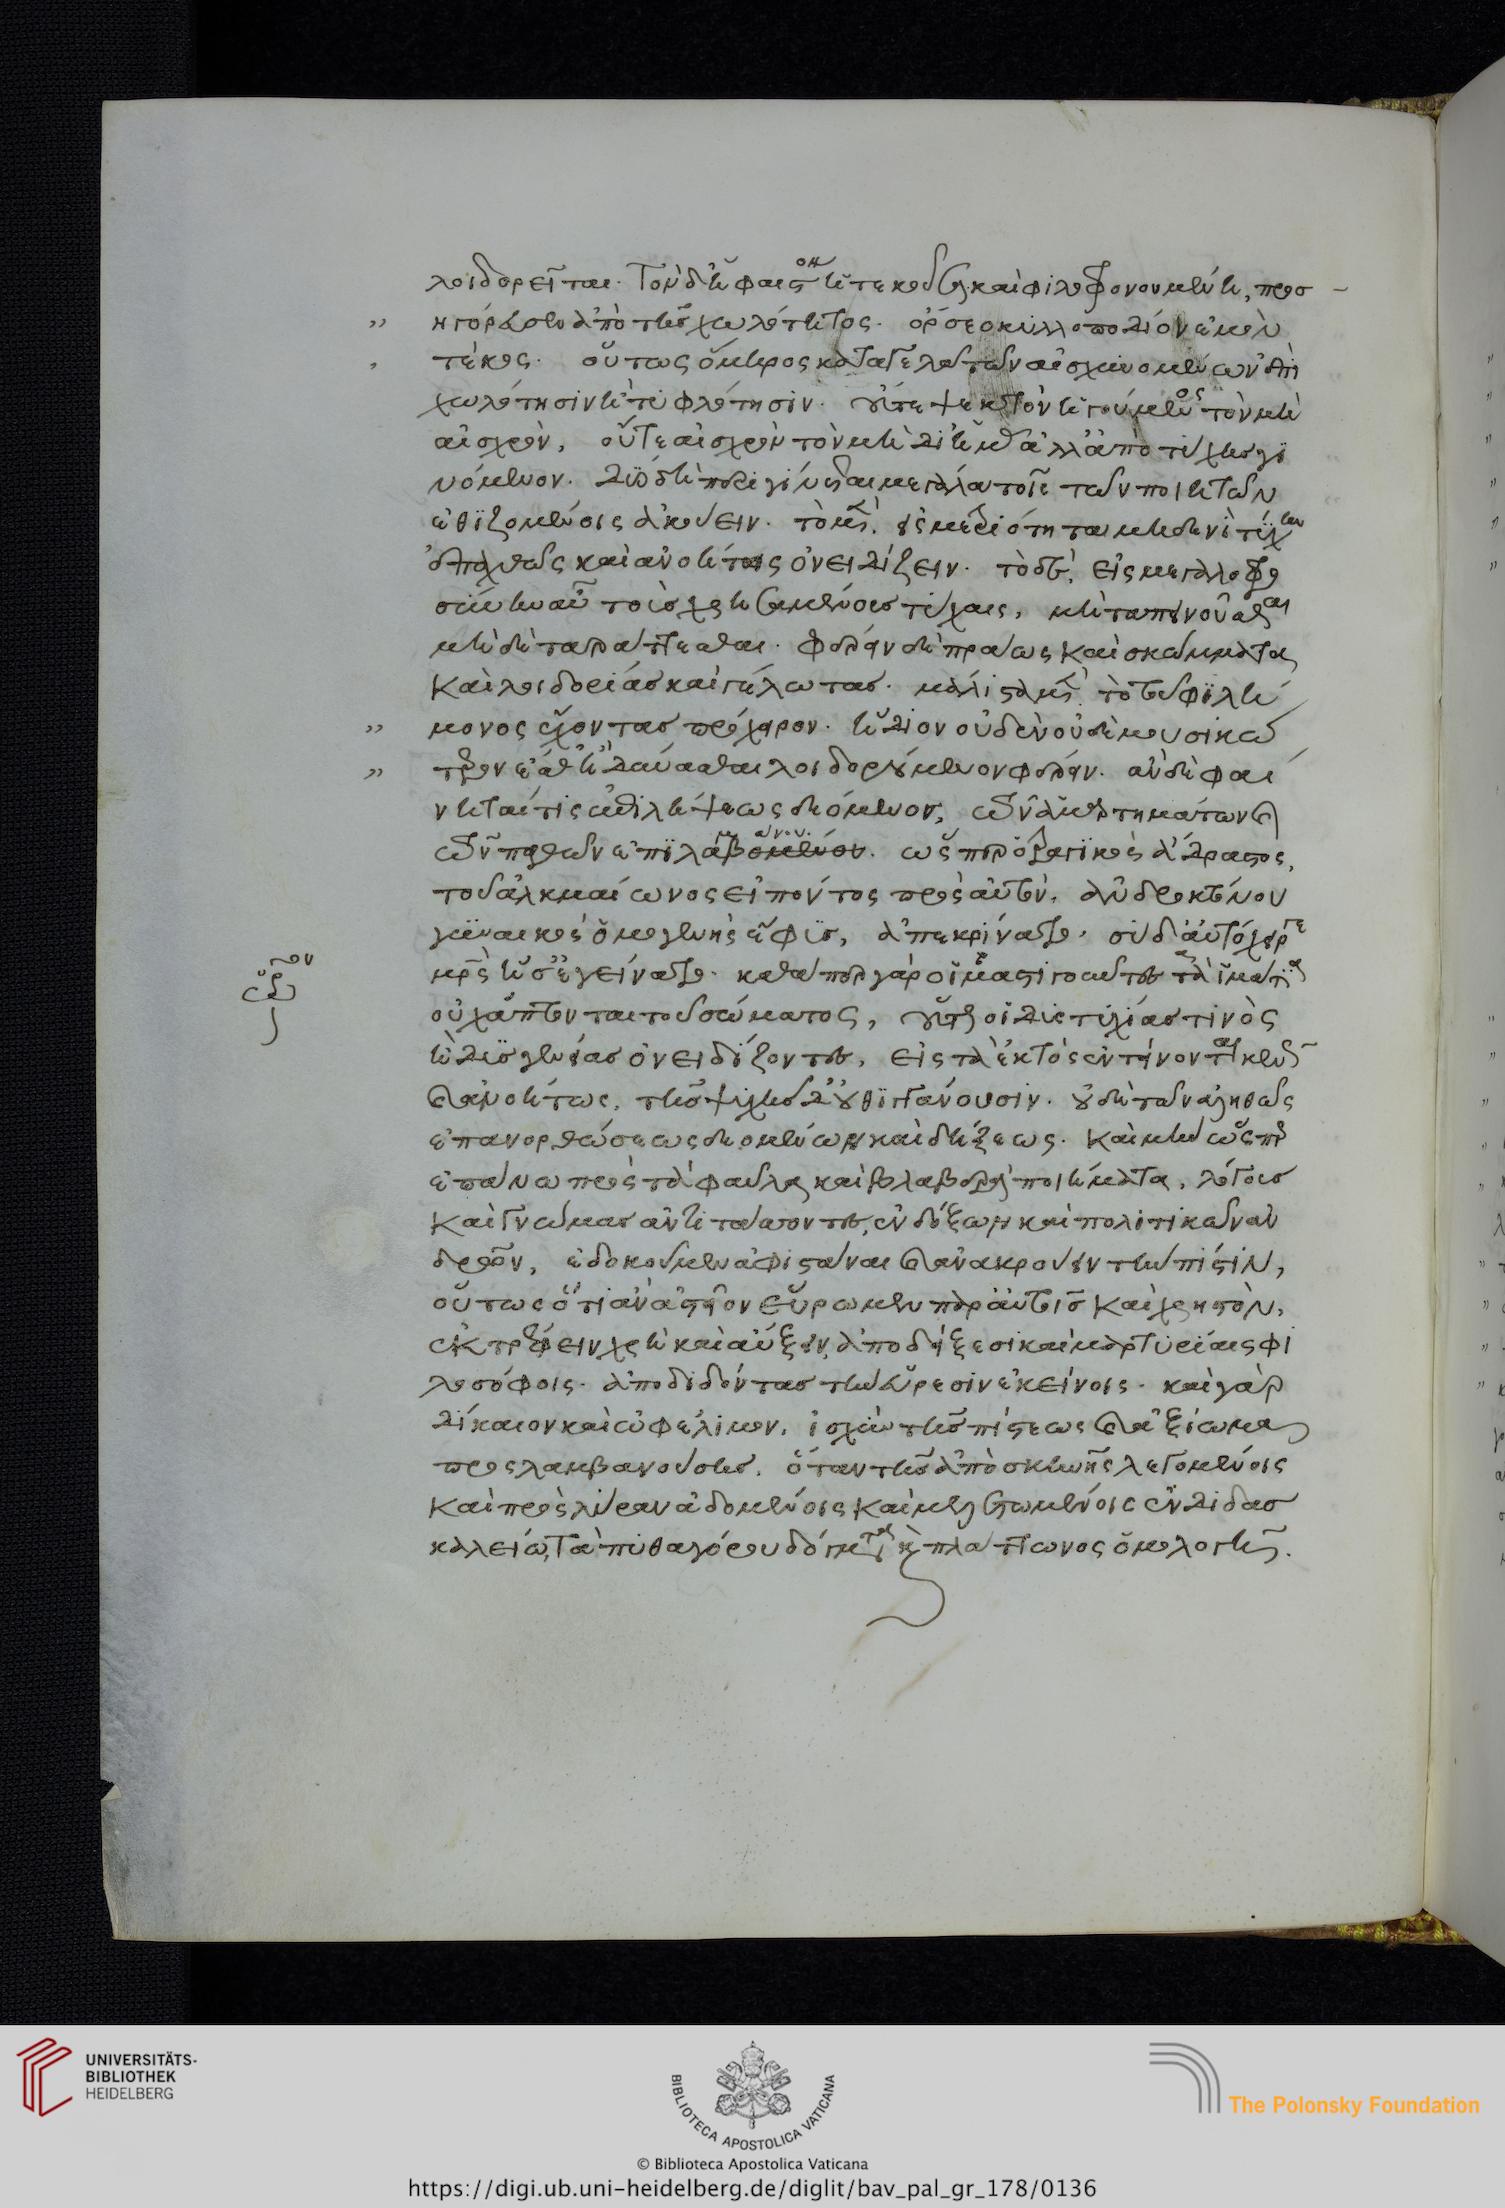 λοιδορεῖται. Τὸν δ' ἥφαιστον ἡ τεκοῦσα καὶ φιλοφρονουμένη, προσ
ηγόρευσεν ἀπὸ τῆς χωλότητος. ὄρσεο κυλλοποδίον ἐμὸν
τέκος. οὕτως ὅμηρος καταγελᾷ τῶν αἰσχυνομένων ἐπὶ
χωλότησιν ἢ τυφλότησιν. οὔτε ψεκτὸν ἡγούμενος τὸν μὴ
αἰσχρὸν, οὔτε αἰσχρὸν τὸν μὴ δι' ἡμᾶς ἀλλ' ἀπὸ τύχης γι
νόμενον. δύο δὴ περιγίνεται μεγάλα τοῖς τῶν ποιητῶν
ἐθιζομένοις ἀκούειν. τὸ μὲν, εἰς μετριότητα μηδενὶ τύχην
ἐπαχθῶς καὶ ἀνοήτως ὀνειδίζειν. τὸ δὲ, εἰς μεγαλοφρο
σύνην αὐτοὺς χρησαμένους τύχαις, μὴ ταπεινοῦσθαι
μηδὲ ταράττεσθαι. φέρειν δὲ πράως καὶ σκώμματα
καὶ λοιδορίας καὶ γέλωτας. μάλιστα μὲν τὸ τοῦ φιλή
μονος ἔχοντας πρόχειρον. ἥδιον οὐδὲν οὐδὲ μουσικώ
τερον ἔσθ' ἢ δύνασθαι λοιδορούμενον φέρειν. ἂν δὲ φαί
νηταί τις ἐπιλήψεως δεόμενος, τῶν ἁμαρτημάτων καὶ
τῶν παθῶν ἐπιλαμβανομένου. ὥσπερ ὁ τραγικὸς ἄδραστος,
τοῦ ἀλκμαίωνος εἰπόντος πρὸς αὐτὸν, ἀνδροκτόνου
γυναικὸς ὁμογενὴς ἔφυς, ἀπεκρίνατο. σὺ δ' αὐτόχειρ γε
μητρὸς ἥ σ' ἐγείνατο. καθάπερ γὰρ οἱ μαστιγοῦντες τὰ ἱμάτια
οὐχ ἅπτονται τοῦ σώματος, οὕτως οἱ δυστυχίας τινὸς
ἢ δυσγενείας ὀνειδίζοντες, εἰς τὰ ἐκτὸς ἐντείνονται κενῶς
καὶ ἀνοήτως, τῆς ψυχῆς δ' οὐ θιγγάνουσιν. οὐδὲ τῶν ἀληθῶς
ἐπανορθώσεως δεομένων καὶ δήξεως. Καὶ μὴν ὥσπερ
ἐπάνω πρὸς τὰ φαῦλα καὶ βλαβερὰ ποιήματα, λόγους
καὶ γνώμας ἀντιτάττοντες, ἐνδόξων καὶ πολιτικῶν ἀν
δρῶν, ἐδοκοῦμεν ἀφιστάναι καὶ ἀνακρούειν τὴν πίστιν,
οὕτως ὅτι ἂν ἀστεῖον εὕρωμεν παρ' αὐτοῖς καὶ χρηστὸν,
ἐκτρέφειν χρὴ καὶ αὔξειν ἀποδείξεσι καὶ μαρτυρίαις φι
λοσόφοις. ἀποδιδόντας τὴν εὕρεσιν ἐκείνοις. καὶ γὰρ
δίκαιον καὶ ὠφέλιμον, ἰσχὺν τῆς πίστεως καὶ ἀξίωμα
προςλαμβανούσης. ὅταν τῆς ἀπὸ σκηνῆς λεγομένοις
καὶ πρὸς λύραν ἀδομένοις καὶ μελετωμένοις ἐν διδασ
καλείω, τὰ πυθαγόρου δόγματα καὶ πλάτωνος ὁμολογῆ.
ὡραῖον
UNIVERSITÄTS-
BIBLIOTHEK
HEIDELBERG
BIBLIOTECA APOSTOLICA VATICANA
The Polonsky Foundation
© Biblioteca Apostolica Vaticana
https://digi.ub.uni-heidelberg.de/diglit/bav_pal_gr_178/0136